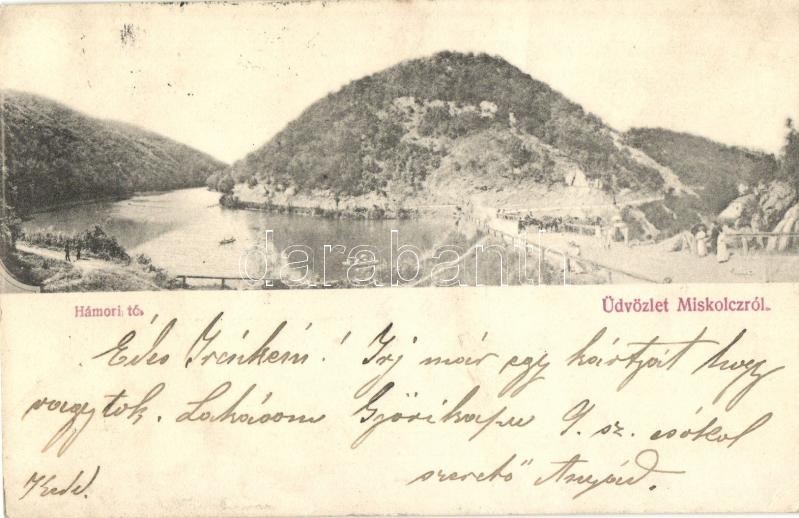 darabanth
Hámori tó.
Üdvözlet Miskolczról.
Édes Irénkém! Irj már egy kártyát hogy
vagytok. Lakásom Győrikapu 9. sz. csókol
Kedd. szerető Anyád.